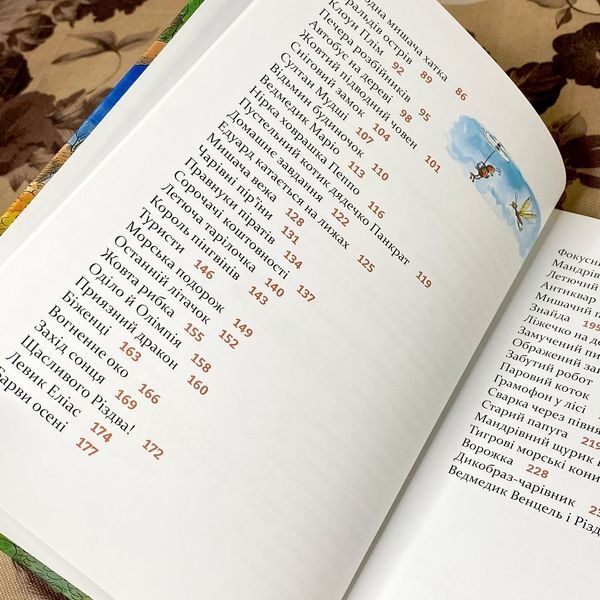 дна мишача хатка 86
ральдів острів 89
Клоун Плім 92
Печера розбійників 95
Автобус на дереві 98
Жовтий підводний човен 101
Сніговий замок 104
Султан Мудші 107
Відьмин будиночок 110
Ведмедик Маріо 113
Нірка ховрашка Пеппо 116
Пустельний котик дядечко Панкрат 119
Домашнє завдання 122
Едуард катається на лижах 125
Мишача вежа 128
Чарівні пір'їни 131
Правнуки піратів 134
Сорочачі коштовності 137
Летюча тарілочка 140
Король пінгвінів 143
Туристи 146
Морська подорож 149
Останній літачок 152
Жовта рибка 155
Оділо й Олімпія 158
Приязний дракон 160
Біженці 163
Вогненне око 166
Захід сонця 169
Щасливого Різдва! 172
Левик Еліас 174
Барви осені 177
Фокусн
Мандрів
Летючий
Антиквар
Мишачий п
Знайда 195
Ліжечко на де
Замучений пи
Ображений за
Забутий робот
Паровий коток
Грамофон у лісі
Сварка через півня
Старий папуга 219
Мандрівний щурик
Тигрові морські кони
Ворожка 228
Дикобраз-чарівник 23
Ведмедик Венцель і Різд